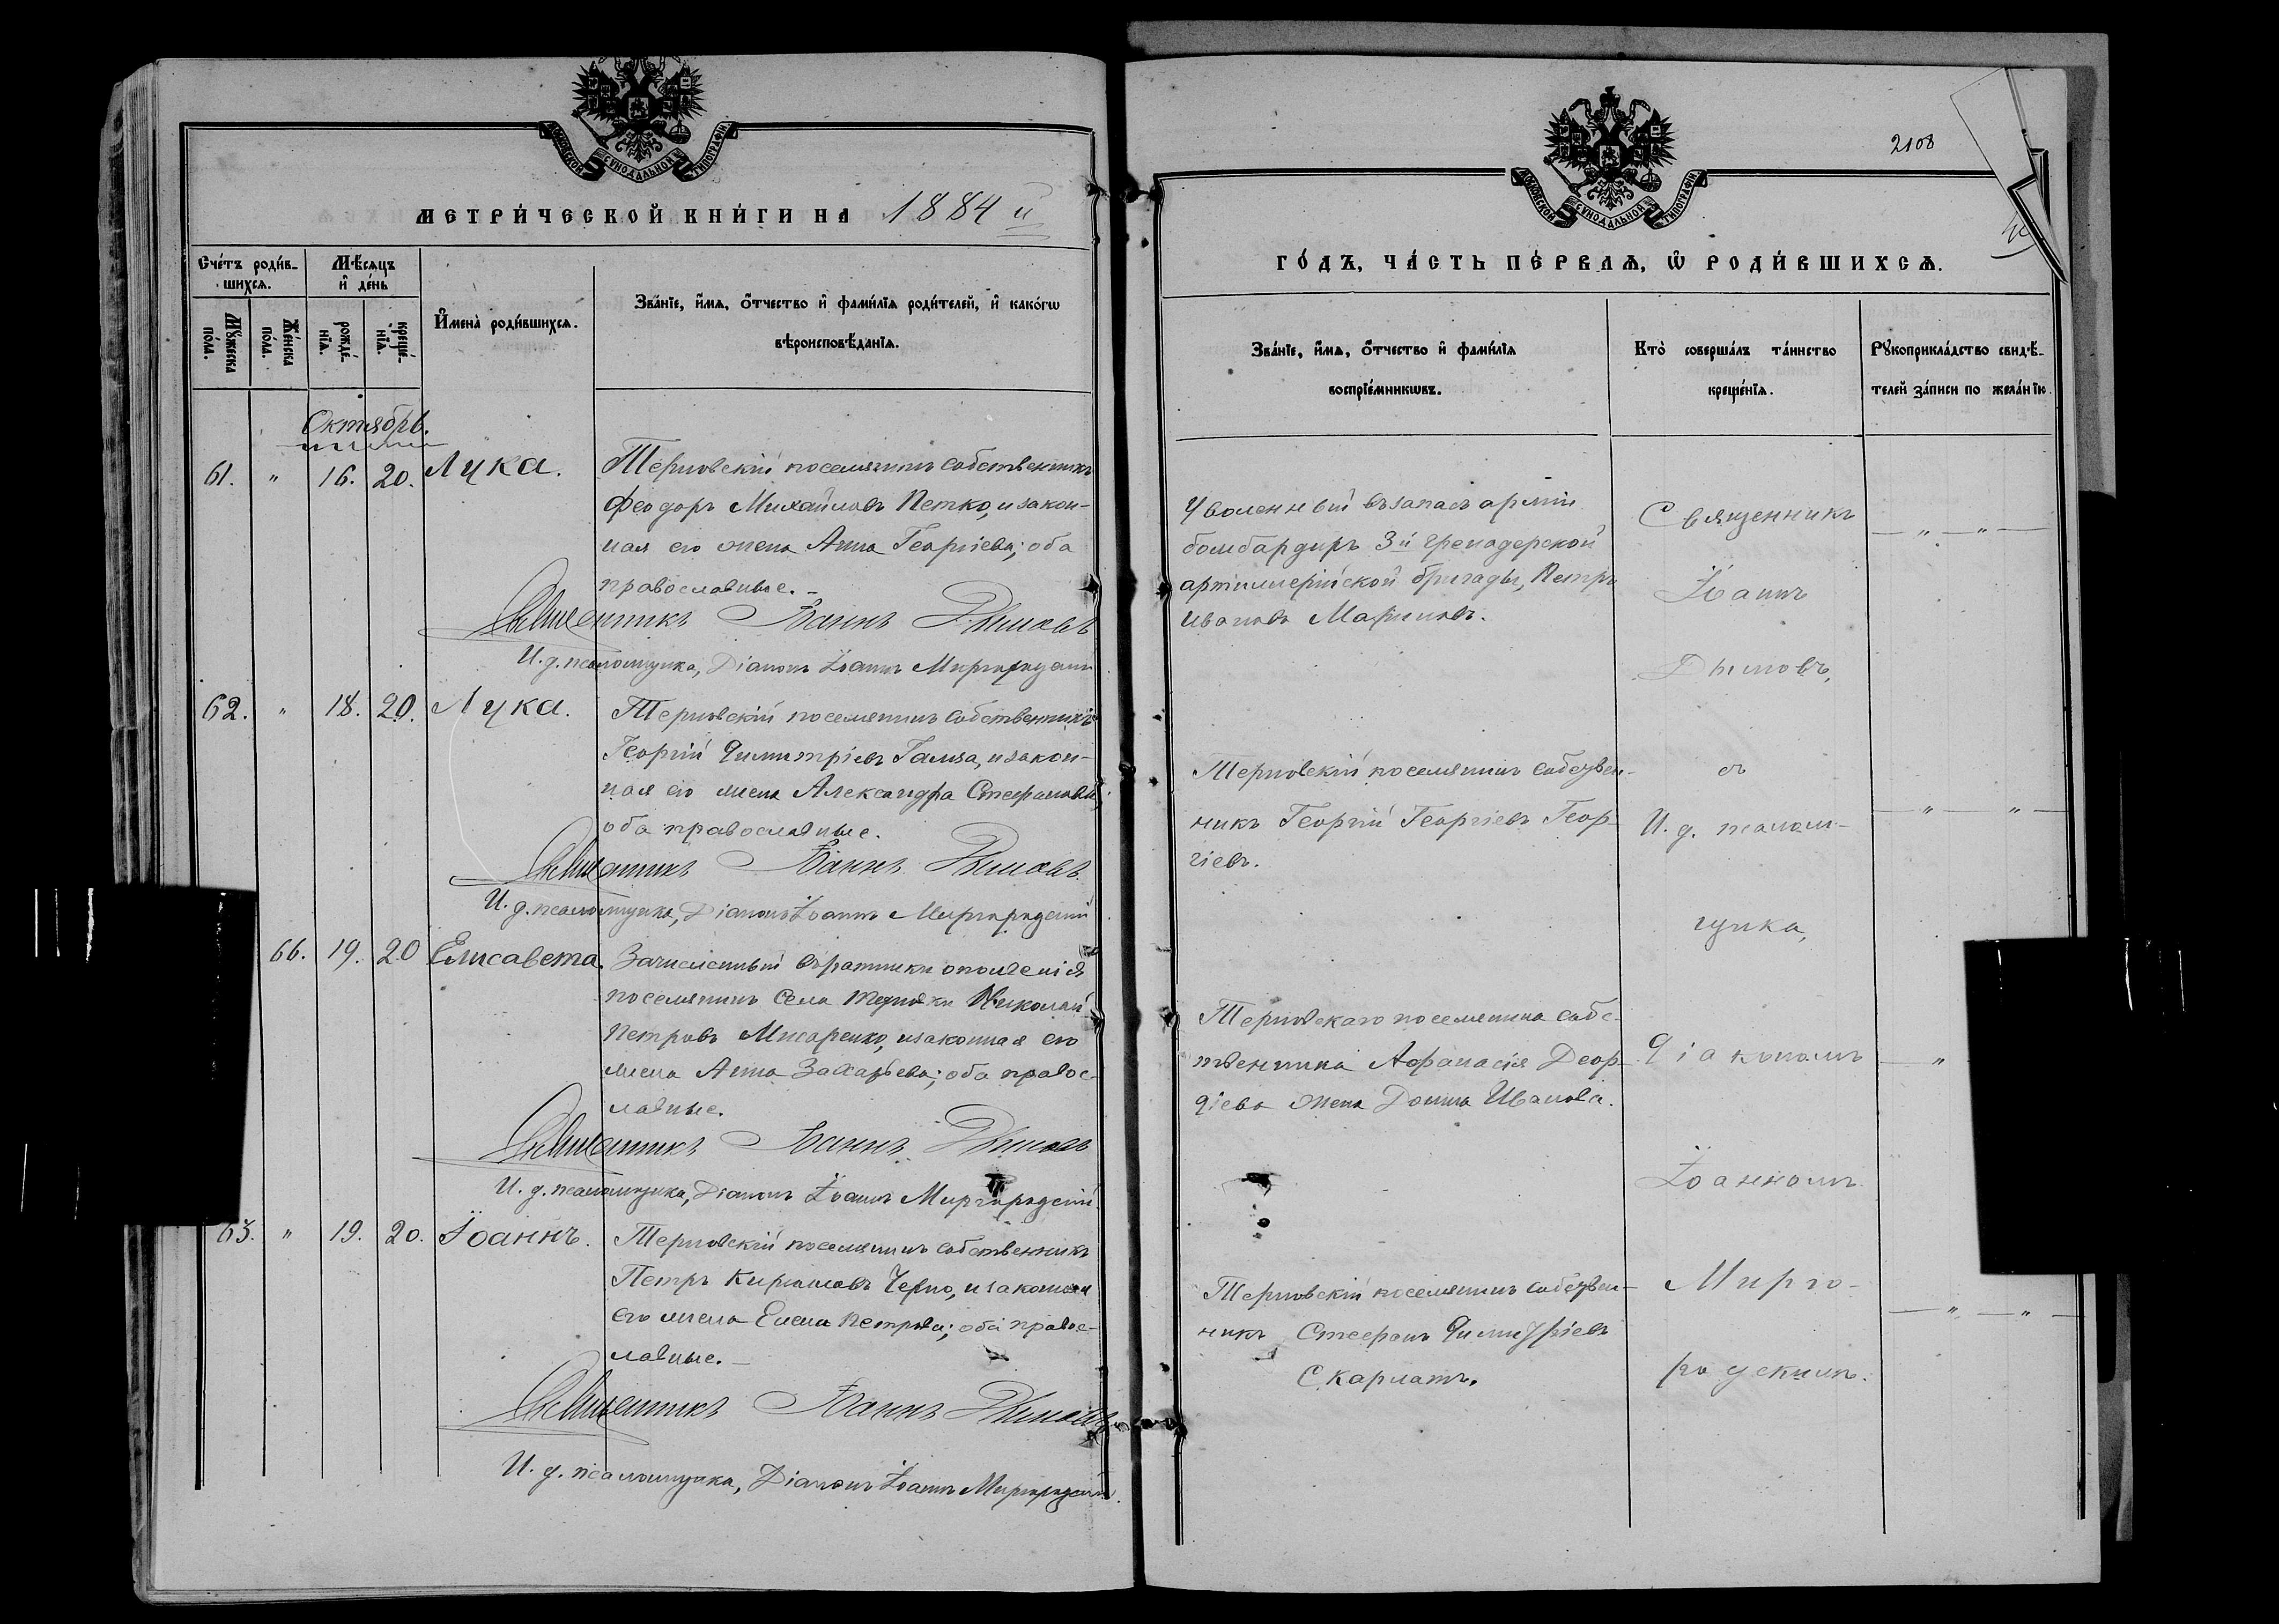 МОСКОВСКОЙ СѴНОДАЛЬНОЙ ТИПОГРАФІИ
МЕТРИ́ЧЕСКОЙ КНИ́ГИ НА 1884 й
Сче́тъ роди́в-
шихся.
Мѣ́сяцъ
и҆ де́нь
Мꙋ́жеска
по́ла.
Же́нска
по́ла.
рожде́-
нїя.
креще́-
нїя.
И҆мена̀ роди́вшихся.
Зва́нїе, и҆́мя, ѻ҆́тчество и҆ фами́лїя роди́телей, и҆ како́гѡ
вѣроисповѣ́данїя.
Октябрь.
61. " 16. 20. Лука.
Терновскій поселянинъ собственникъ
Феодоръ Михайловъ Петко, и закон-
ная его жена Анна Георгіева; оба
православные.
Священникъ Іоаннъ Дымовъ
И. д. псаломщика, Діаконъ Іоаннъ Миргородскій
62. " 18. 20. Лука.
Терновскій поселянинъ собственникъ
Георгій Димитріевъ Гамза, и закон-
ная его жена Александра Стефанова;
оба православные.
Священникъ Іоаннъ Дымовъ
И. д. псаломщика, Діаконъ Іоаннъ Миргородскій
66. 19. 20 Елисавета.
Зачисленный въ ратники ополченія
поселянинъ села Терновки Николай
Петровъ Писаренко, и законная его
жена Анна Захарьева; оба правос-
лавные.
Священникъ Іоаннъ Дымовъ
И. д. псаломщика, Діаконъ Іоаннъ Миргородскій
63. " 19. 20. Іоаннъ.
Терновскій поселянинъ собственникъ
Петръ Кириловъ Черно, и законная
его жена Елена Петрова; оба правос-
лавные.
Священникъ Іоаннъ Дымовъ
И. д. псаломщика, Діаконъ Іоаннъ Миргородскій.
2108
МОСКОВСКОЙ СѴНОДАЛЬНОЙ ТИПОГРАФІИ
ГО́ДЪ, ЧА́СТЬ ПЕ́РВАЯ, Ѡ҆ РОДИ́ВШИХСЯ.
Зва́нїе, и҆́мя, ѻ҆́тчество и҆ фами́лїя
воспрїе́мникѡвъ.
Кто̀ соверша́лъ та́инство
креще́нїя.
Рꙋкоприкла́дство свидѣ́-
телей за́писи по жела́нїю.
Уволенный въ запасъ арміи
бомбардиръ 3й гренадерской
артиллерійской бригады, Петръ
Ивановъ Мариновъ.
Терновскій поселянинъ собствен-
никъ Георгій Георгіевъ Геор-
гіевъ.
Терновскаго поселянина собс-
твенника Афанасія Геор-
гіева жена Домна Иванова.
Терновскій поселянинъ собствен-
никъ Стефанъ Димитріевъ
Скарлатъ.
Священникъ
Іоаннъ
Дымовъ,
съ
И. д. псалом-
щика,
Діакономъ
Іоанномъ
Мирго-
родскимъ.